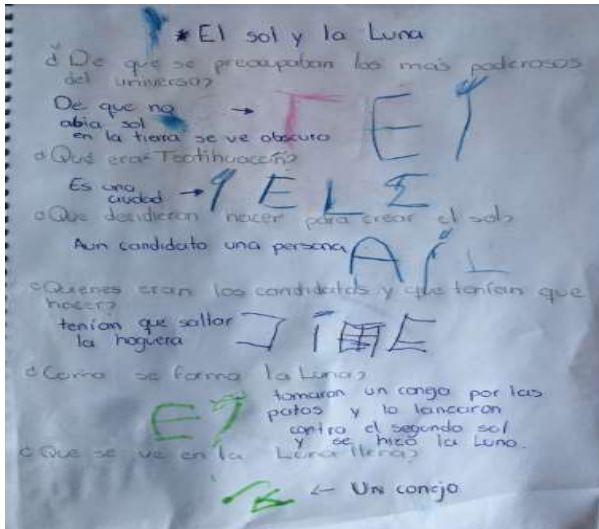 * El sol y la Luna
¿ De que se preocupaban los mas poderosos
del universo?
De que no →
abia sol
en la tierra se ve obscuro
¿Qué era Teotihuacán?
Es una
ciudad →
¿Que decidieron hacer para crear el sol?
Aun candidato una persona
¿Quienes eran los candidatos y que tenían que
hacer?
tenían que saltar
la hoguera
¿Como se forma la Luna?
tomaron un congo por las
patas y lo lancaron
contra el segundo sol
y se hizo la Luna.
¿Que se ve en la Luna llena?
← Un conejo